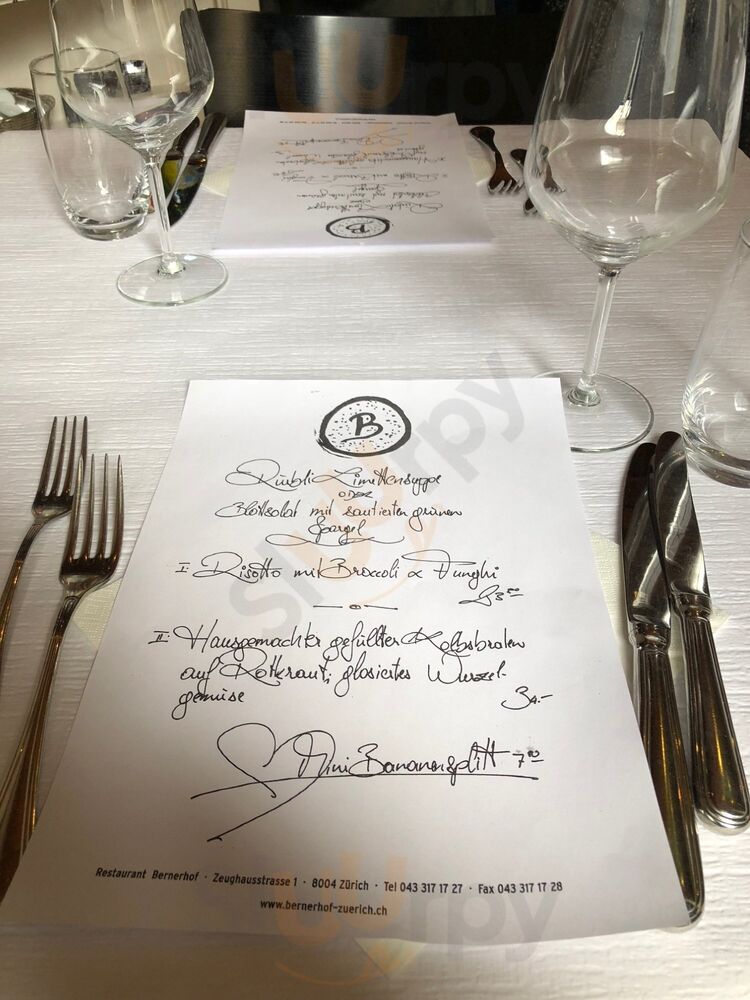 B
Rüebli Limettensuppe
oder
Blattsalat mit sautierten grünen
Spargel
I Risotto mit Broccoli & Funghi
II Hausgemachter gefüllter Kalbsbraten
auf Rotkraut, glasiertes Wurzel-
gemüse
Mini Bananensplitt 7.50
Restaurant Bernerhof · Zeughausstrasse 1 · 8004 Zürich · Tel 043 317 17 27 · Fax 043 317 17 28
www.bernerhof-zuerich.ch